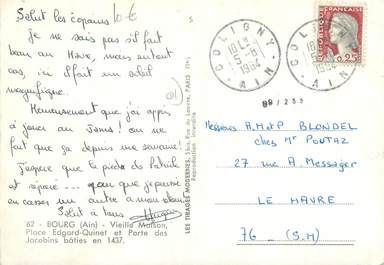 Salut les copains 10 €
je ne sais pas s'il fait
beau au Havre, mais en tout
cas, ici il fait un soleil
magnifique.
Heureusement que j'ai appris
à jouer au Tennis ! on ne
fait que ça depuis une semaine !
J'espère que le pied de Patrick
est réparé ... que je puisse
en casser un autre à mon
Salut à tous
Hugues
62 - BOURG (Ain) - Vieille Maison,
Place Edgard-Quinet et Porte des
Jacobins bâties en 1437.
S
LES TIRAGES MODERNES, 5bis, Rue du Louvre, PARIS (1er)
Reproduction Interdite
COLIGNY
18 H
5-8
1964
AIN
COLIGNY
1964
AIN
RÉPUBLIQUE FRANÇAISE
0,25
Messieurs A.M et P BLONDEL
chez Mr POUTAZ
27 rue A Messager
LE HAVRE
76 - (S.M)